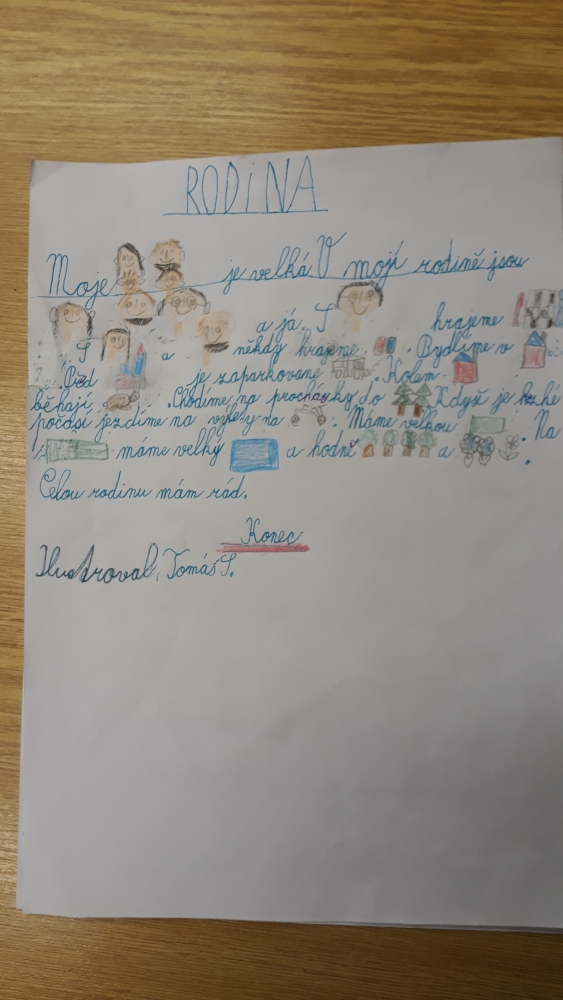 RODINA
Moje je velká. V mojí rodině jsou
a já. S hrajeme
S a někdy hrajeme . Bydlíme v .
Před je zaparkované . Kolem
běhají . Chodíme na procházky do . Když je hezké
počasí jezdíme na výlety na . Máme velkou . Na
máme velký a hodně a .
Celou rodinu mám rád.
Konec
Ilustroval, Tomáš S.